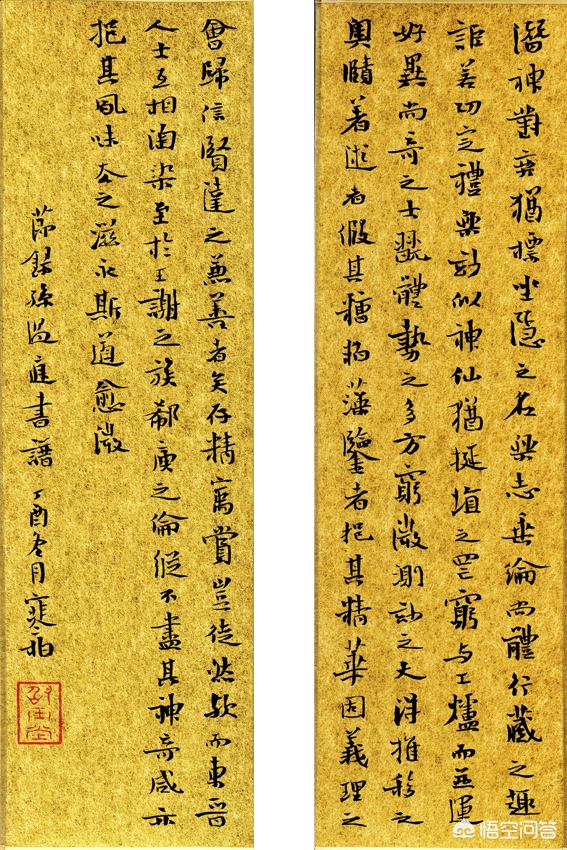 潛神對弈猶標坐隱之名樂志垂綸尚體行藏之趣
詎若功定禮樂妙似神仙猶挻埴之罔窮与工爐而並運
好異尚奇之士翫體勢之多方窮微測妙之夫得推移之
奧賾著述者假其糟粕藻鑒者挹其精華固義理之
會歸信賢達之兼善者矣存精寓賞豈徒然歟而東晉
人士互相陶染至於王謝之族郗庾之倫縱不盡其神奇咸亦
挹其風味去之滋永斯道愈微
節錄孫過庭書譜 丁酉冬月
悟空问答